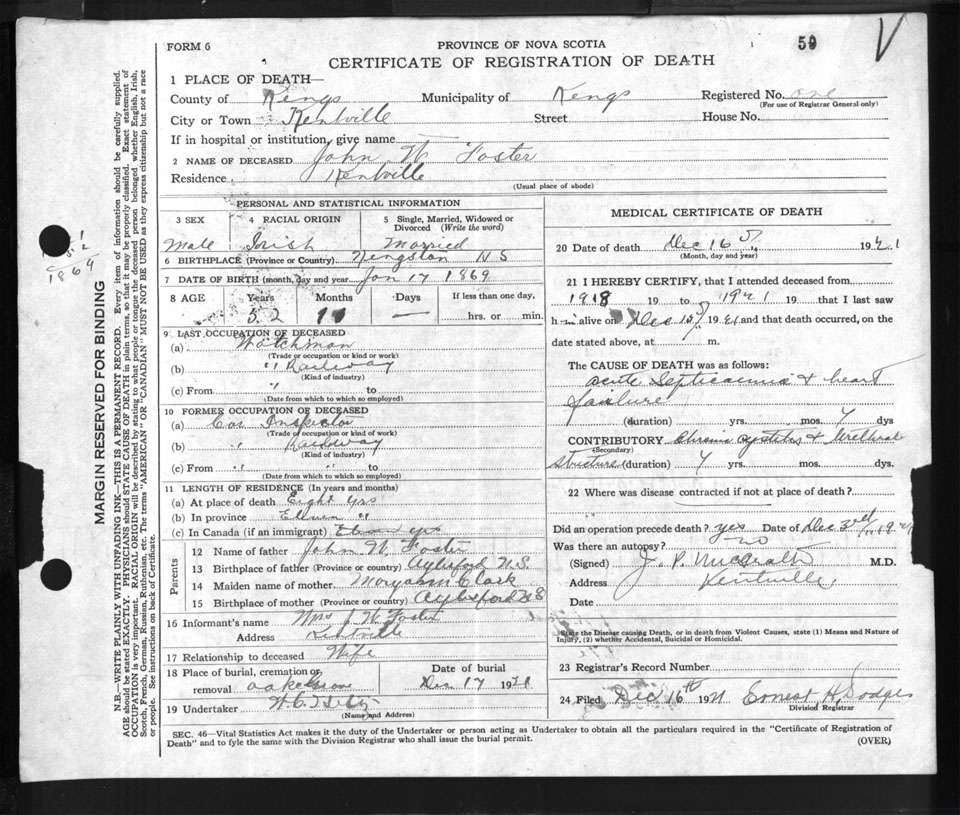 FORM 6
PROVINCE OF NOVA SCOTIA
50
V
CERTIFICATE OF REGISTRATION OF DEATH
1 PLACE OF DEATH—
County of Kings Municipality of Kings Registered No. one
(For use of Registrar General only)
City or Town Kentville Street House No.
If in hospital or institution, give name
2 NAME OF DECEASED John W Foster
Residence Kentville
(Usual place of abode)
PERSONAL AND STATISTICAL INFORMATION
3 SEX 4 RACIAL ORIGIN 5 Single, Married, Widowed or Divorced (Write the word)
Male Irish Married
6 BIRTHPLACE (Province or Country) Kingston N S
7 DATE OF BIRTH (month, day and year) Jan 17 1869
8 AGE Years Months Days If less than one day,
52 — hrs. or min.
9 LAST OCCUPATION OF DECEASED
(a) Watchman
(Trade or occupation or kind or work)
(b) " Railway
(Kind of industry)
(c) From " to
(Date from which to which so employed)
10 FORMER OCCUPATION OF DECEASED
(a) Car Inspector
(Trade or occupation or kind of work)
(b) " Railway
(Kind of industry)
(c) From " " to
(Date from which to which so employed)
11 LENGTH OF RESIDENCE (In years and months)
(a) At place of death Eight yrs
(b) In province "
(c) In Canada (if an immigrant) yrs
Parents
12 Name of father John W. Foster
13 Birthplace of father (Province or country) Aylesford N.S.
14 Maiden name of mother Maryann Clark
15 Birthplace of mother (Province or country) Aylesford N S
16 Informant's name Mrs J W Foster
Address Kentville
17 Relationship to deceased Wife
18 Place of burial, cremation or Date of burial
removal Dec 17 1921
19 Undertaker
(Name and Address)
MEDICAL CERTIFICATE OF DEATH
20 Date of death Dec 16 1921
(Month, day and year)
21 I HEREBY CERTIFY, that I attended deceased from
1918 19 to 1921 19 that I last saw
him alive on Dec 15 1921 and that death occurred, on
date stated above, at m.
The CAUSE OF DEATH was as follows:
acute Septicaemia & heart
failure
(duration) yrs. mos. 7 dys
CONTRIBUTORY Chronic cystitis & Urethral
(Secondary)
stricture (duration) 7 yrs. mos. dys.
22 Where was disease contracted if not at place of death?
Did an operation precede death? yes Date of Dec 3rd 19
Was there an autopsy? no
(Signed) J. P. McGrath M.D.
Address Kentville
Date
State the Disease causing Death, or in death from Violent Causes, state (1) Means and Nature of
Injury, (2) whether Accidental, Suicidal or Homicidal.
23 Registrar's Record Number
24 Filed Dec 16th 1921 Ernest H. Dodge
Division Registrar
SEC. 46—Vital Statistics Act makes it the duty of the Undertaker or person acting as Undertaker to obtain all the particulars required in the "Certificate of Registration of
Death" and to fyle the same with the Division Registrar who shall issue the burial permit.
(OVER)
MARGIN RESERVED FOR BINDING
N.B.—WRITE PLAINLY WITH UNFADING INK—THIS IS A PERMANENT RECORD. Every item of information should be carefully supplied.
AGE should be stated EXACTLY. PHYSICIANS should STATE CAUSE OF DEATH in plain terms, so that it may be properly classified. Exact statement of
OCCUPATION is very important. RACIAL ORIGIN will be described by stating to what people or tongue the deceased person belonged whether English, Irish,
Scotch, French, German, Russian, Ruthenian, etc. The terms "AMERICAN" or "CANADIAN" MUST NOT BE USED as they express citizenship but not a race
or people. See instructions on back of Certificate.
1869